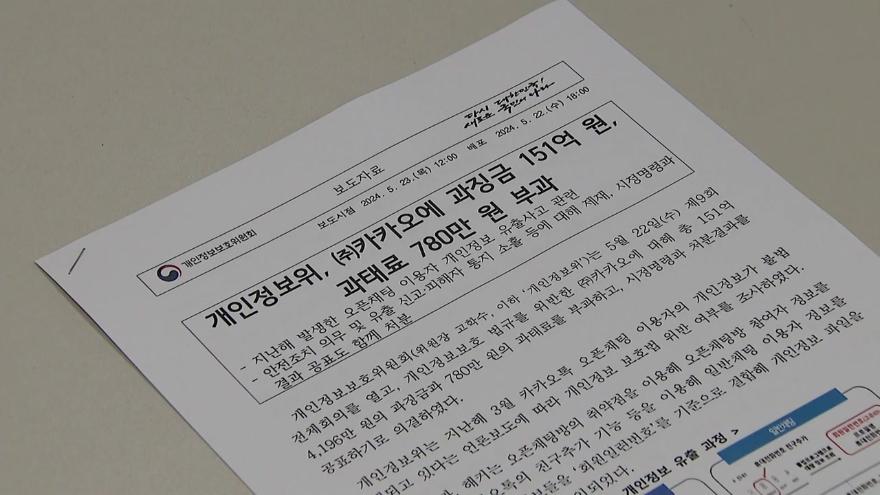 다시 대한민국!
새로운 국민의 나라
보도자료
보도시점 2024. 5. 23.(목) 12:00 배포 2024. 5. 22.(수) 18:00
개인정보보호위원회
개인정보위, ㈜카카오에 과징금 151억 원,
과태료 780만 원 부과
- 지난해 발생한 오픈채팅 이용자 개인정보 유출사고 관련
- 안전조치 의무 및 유출 신고·피해자 통지 소홀 등에 대해 제재, 시정명령과
결과 공표도 함께 처분
개인정보보호위원회(위원장 고학수, 이하 '개인정보위')는 5월 22일(수) 제9회
전체회의를 열고, 개인정보보호 법규를 위반한 ㈜카카오에 대해 총 151억
4,196만 원의 과징금과 780만 원의 과태료를 부과하고, 시정명령과 처분결과를
공표하기로 의결하였다.
개인정보위는 지난해 3월 카카오톡 오픈채팅 이용자의 개인정보가 불법
되고 있다는 언론보도에 따라 개인정보 보호법 위반 여부를 조사하였다.
해커는 오픈채팅방의 취약점을 이용해 오픈채팅방 참여자 정보를
오톡의 친구추가 기능 등을 이용해 일반채팅 이용자 정보를
정보들을 '회원일련번호'를 기준으로 결합해 개인정보 파일을
되었다.
개인정보 유출 과정 >
일반채팅
휴대전화번호 친구추가